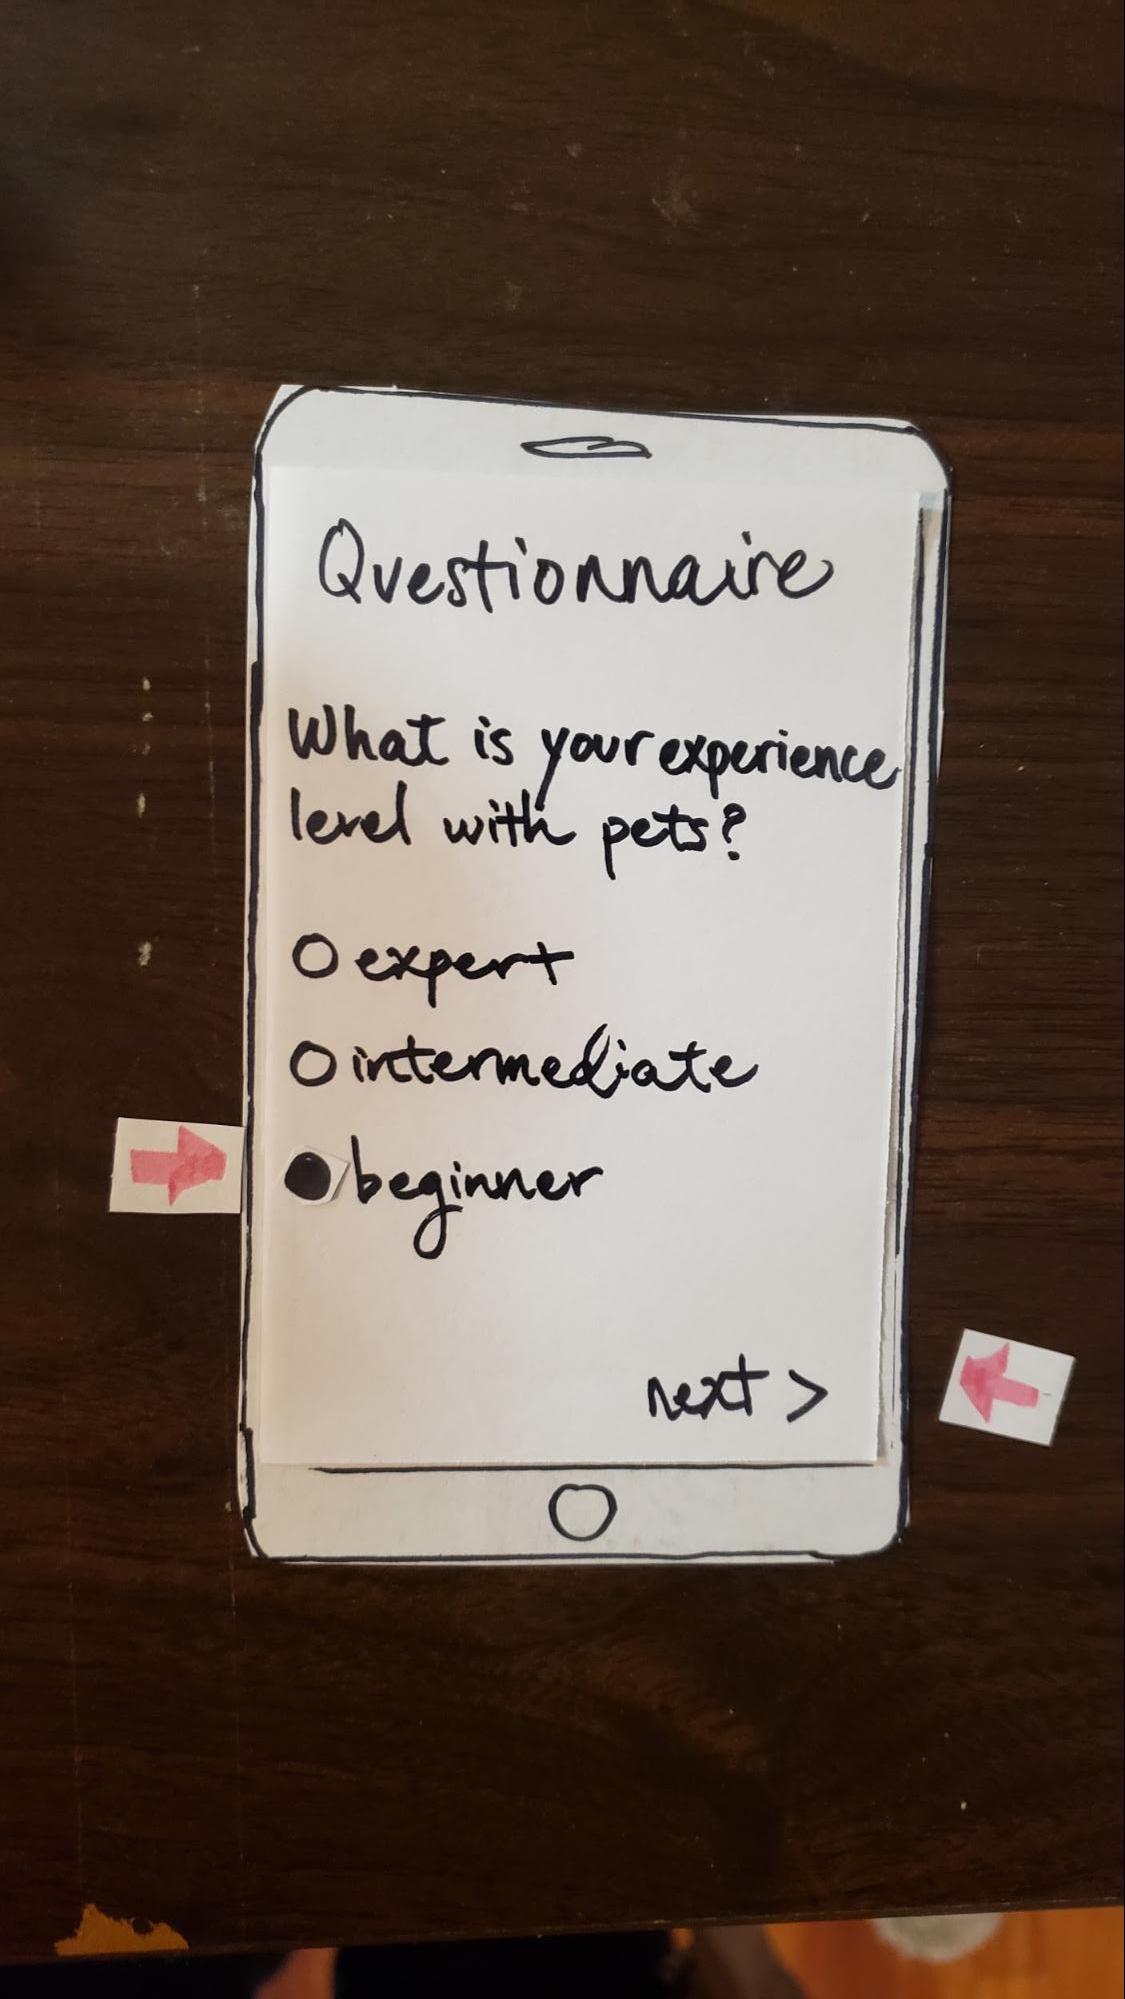 Questionnaire
What is your experience
level with pets?
expert
intermediate
beginner
next >